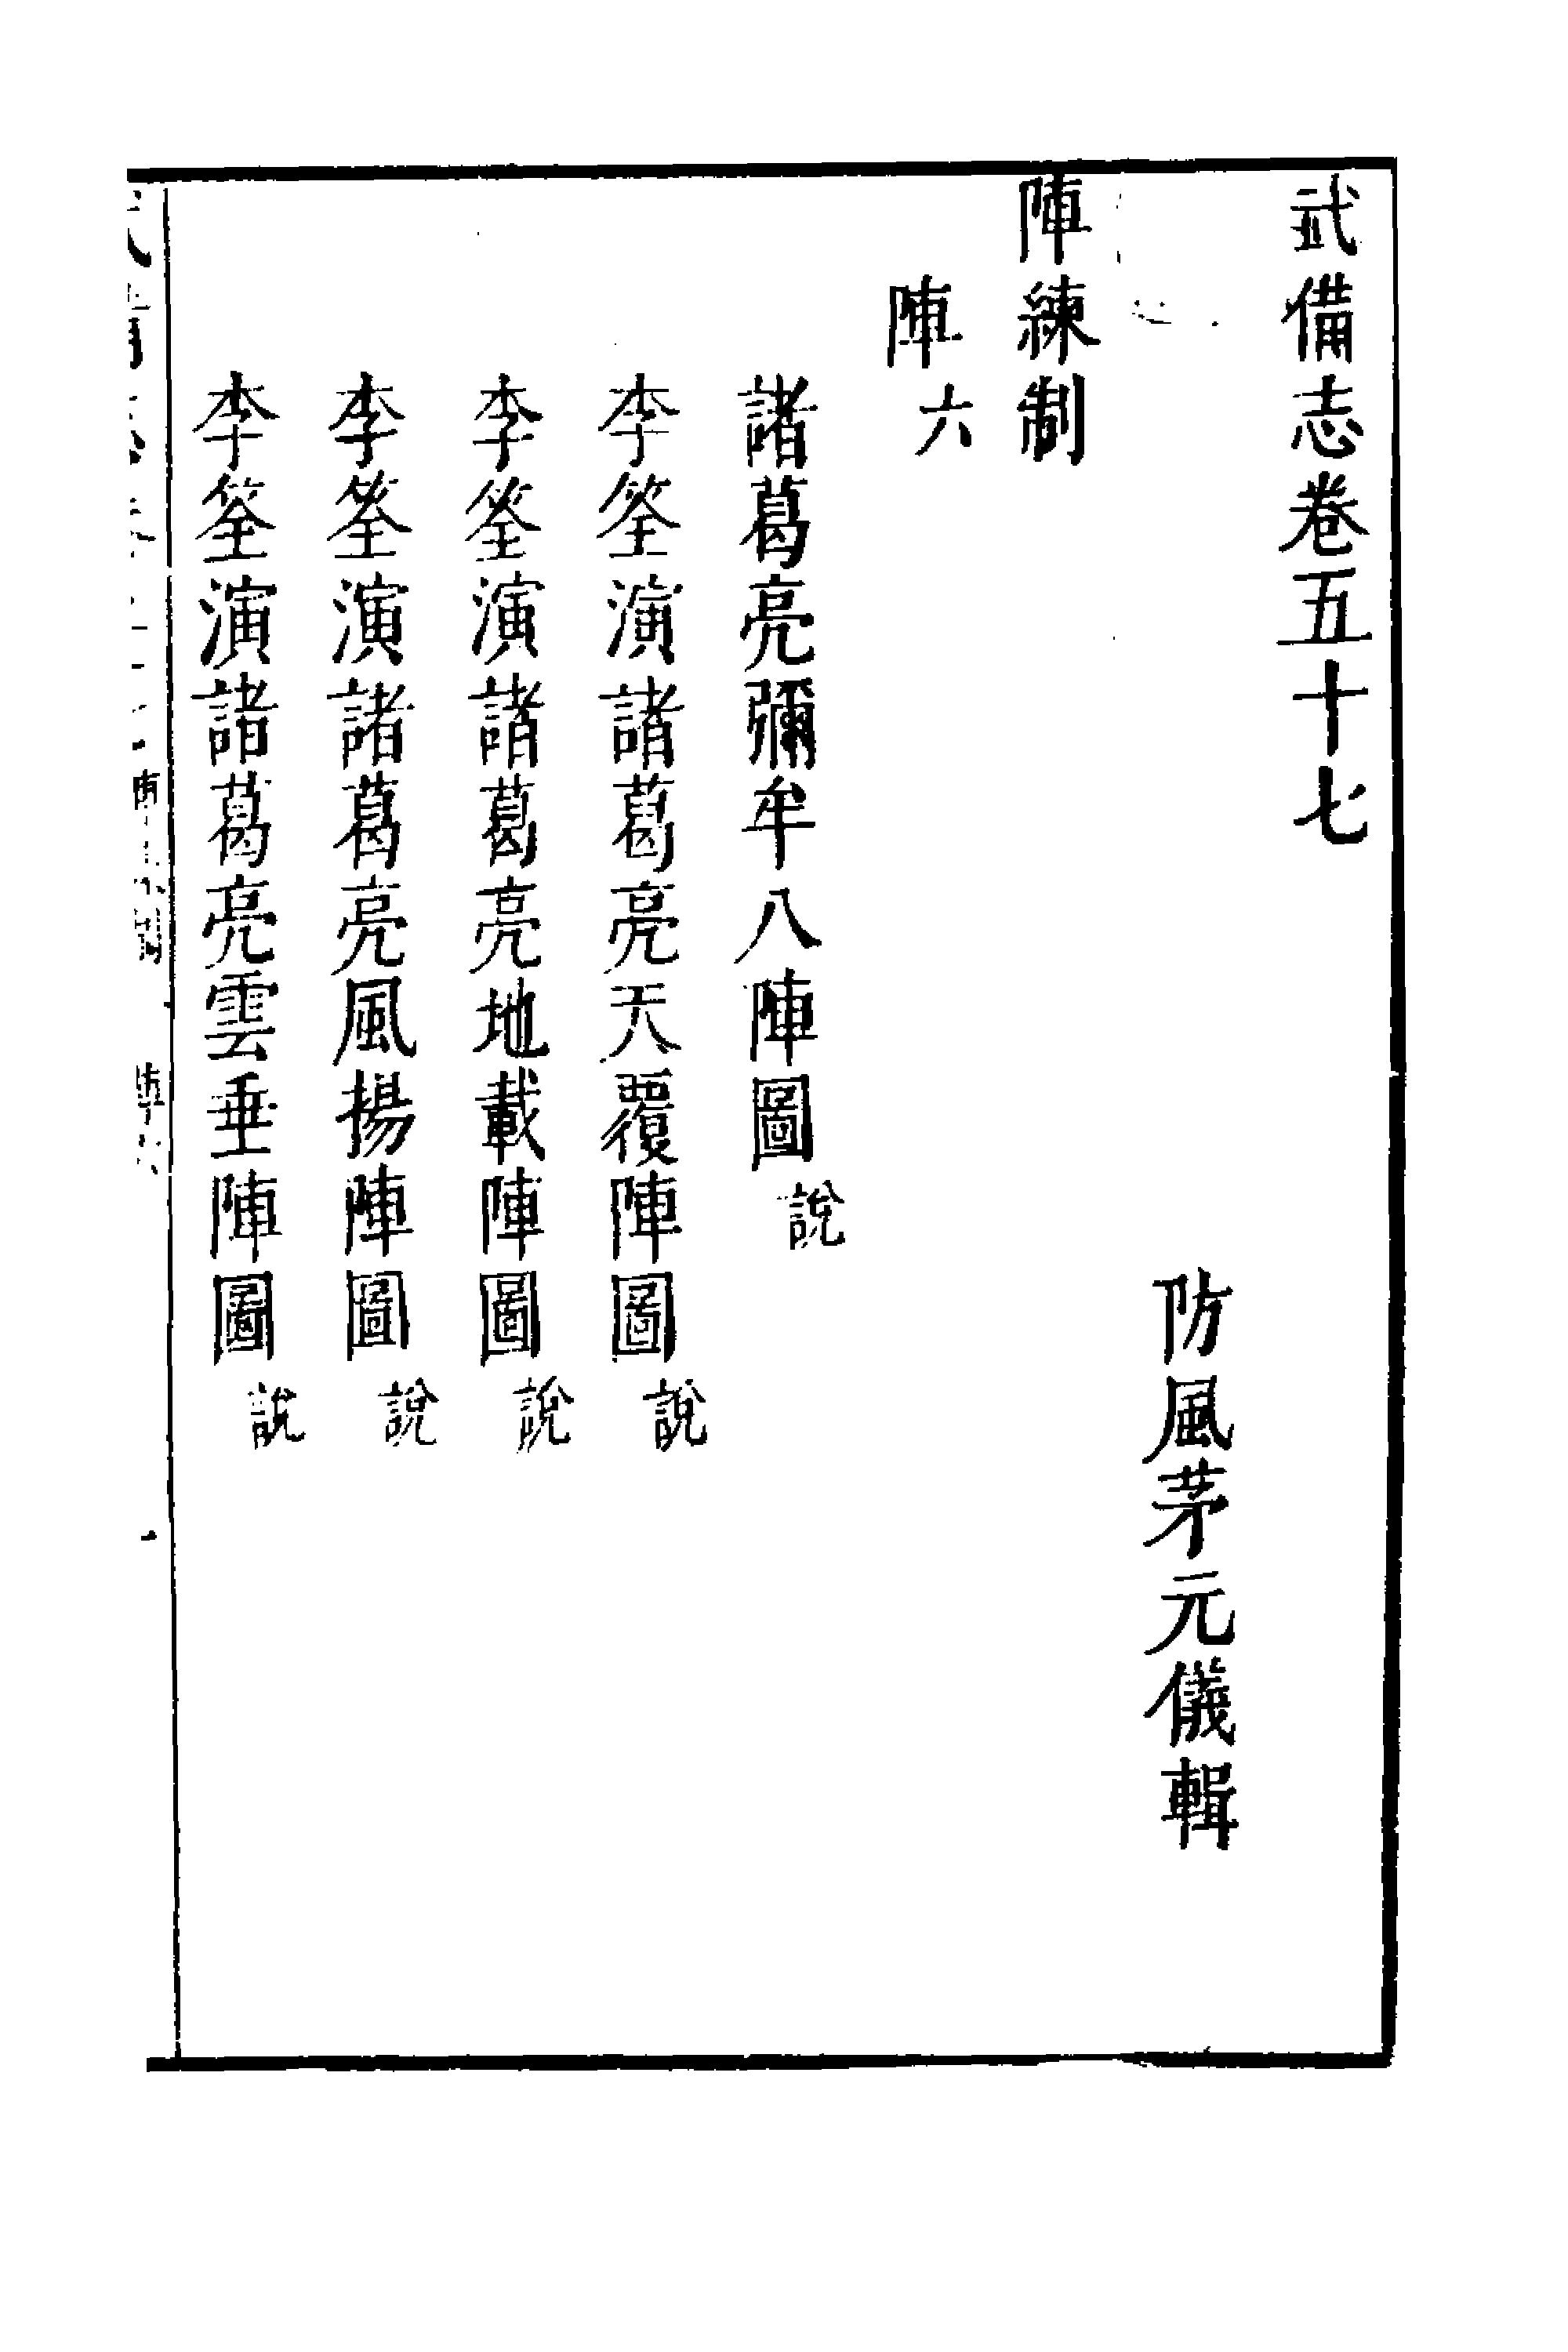 武備志卷五十七
防風茅元儀輯
陣練制
陣六
諸葛亮彌牟八陣圖說
李筌演諸葛亮天覆陣圖說
李筌演諸葛亮地載陣圖說
李筌演諸葛亮風揚陣圖說
李筌演諸葛亮雲垂陣圖說